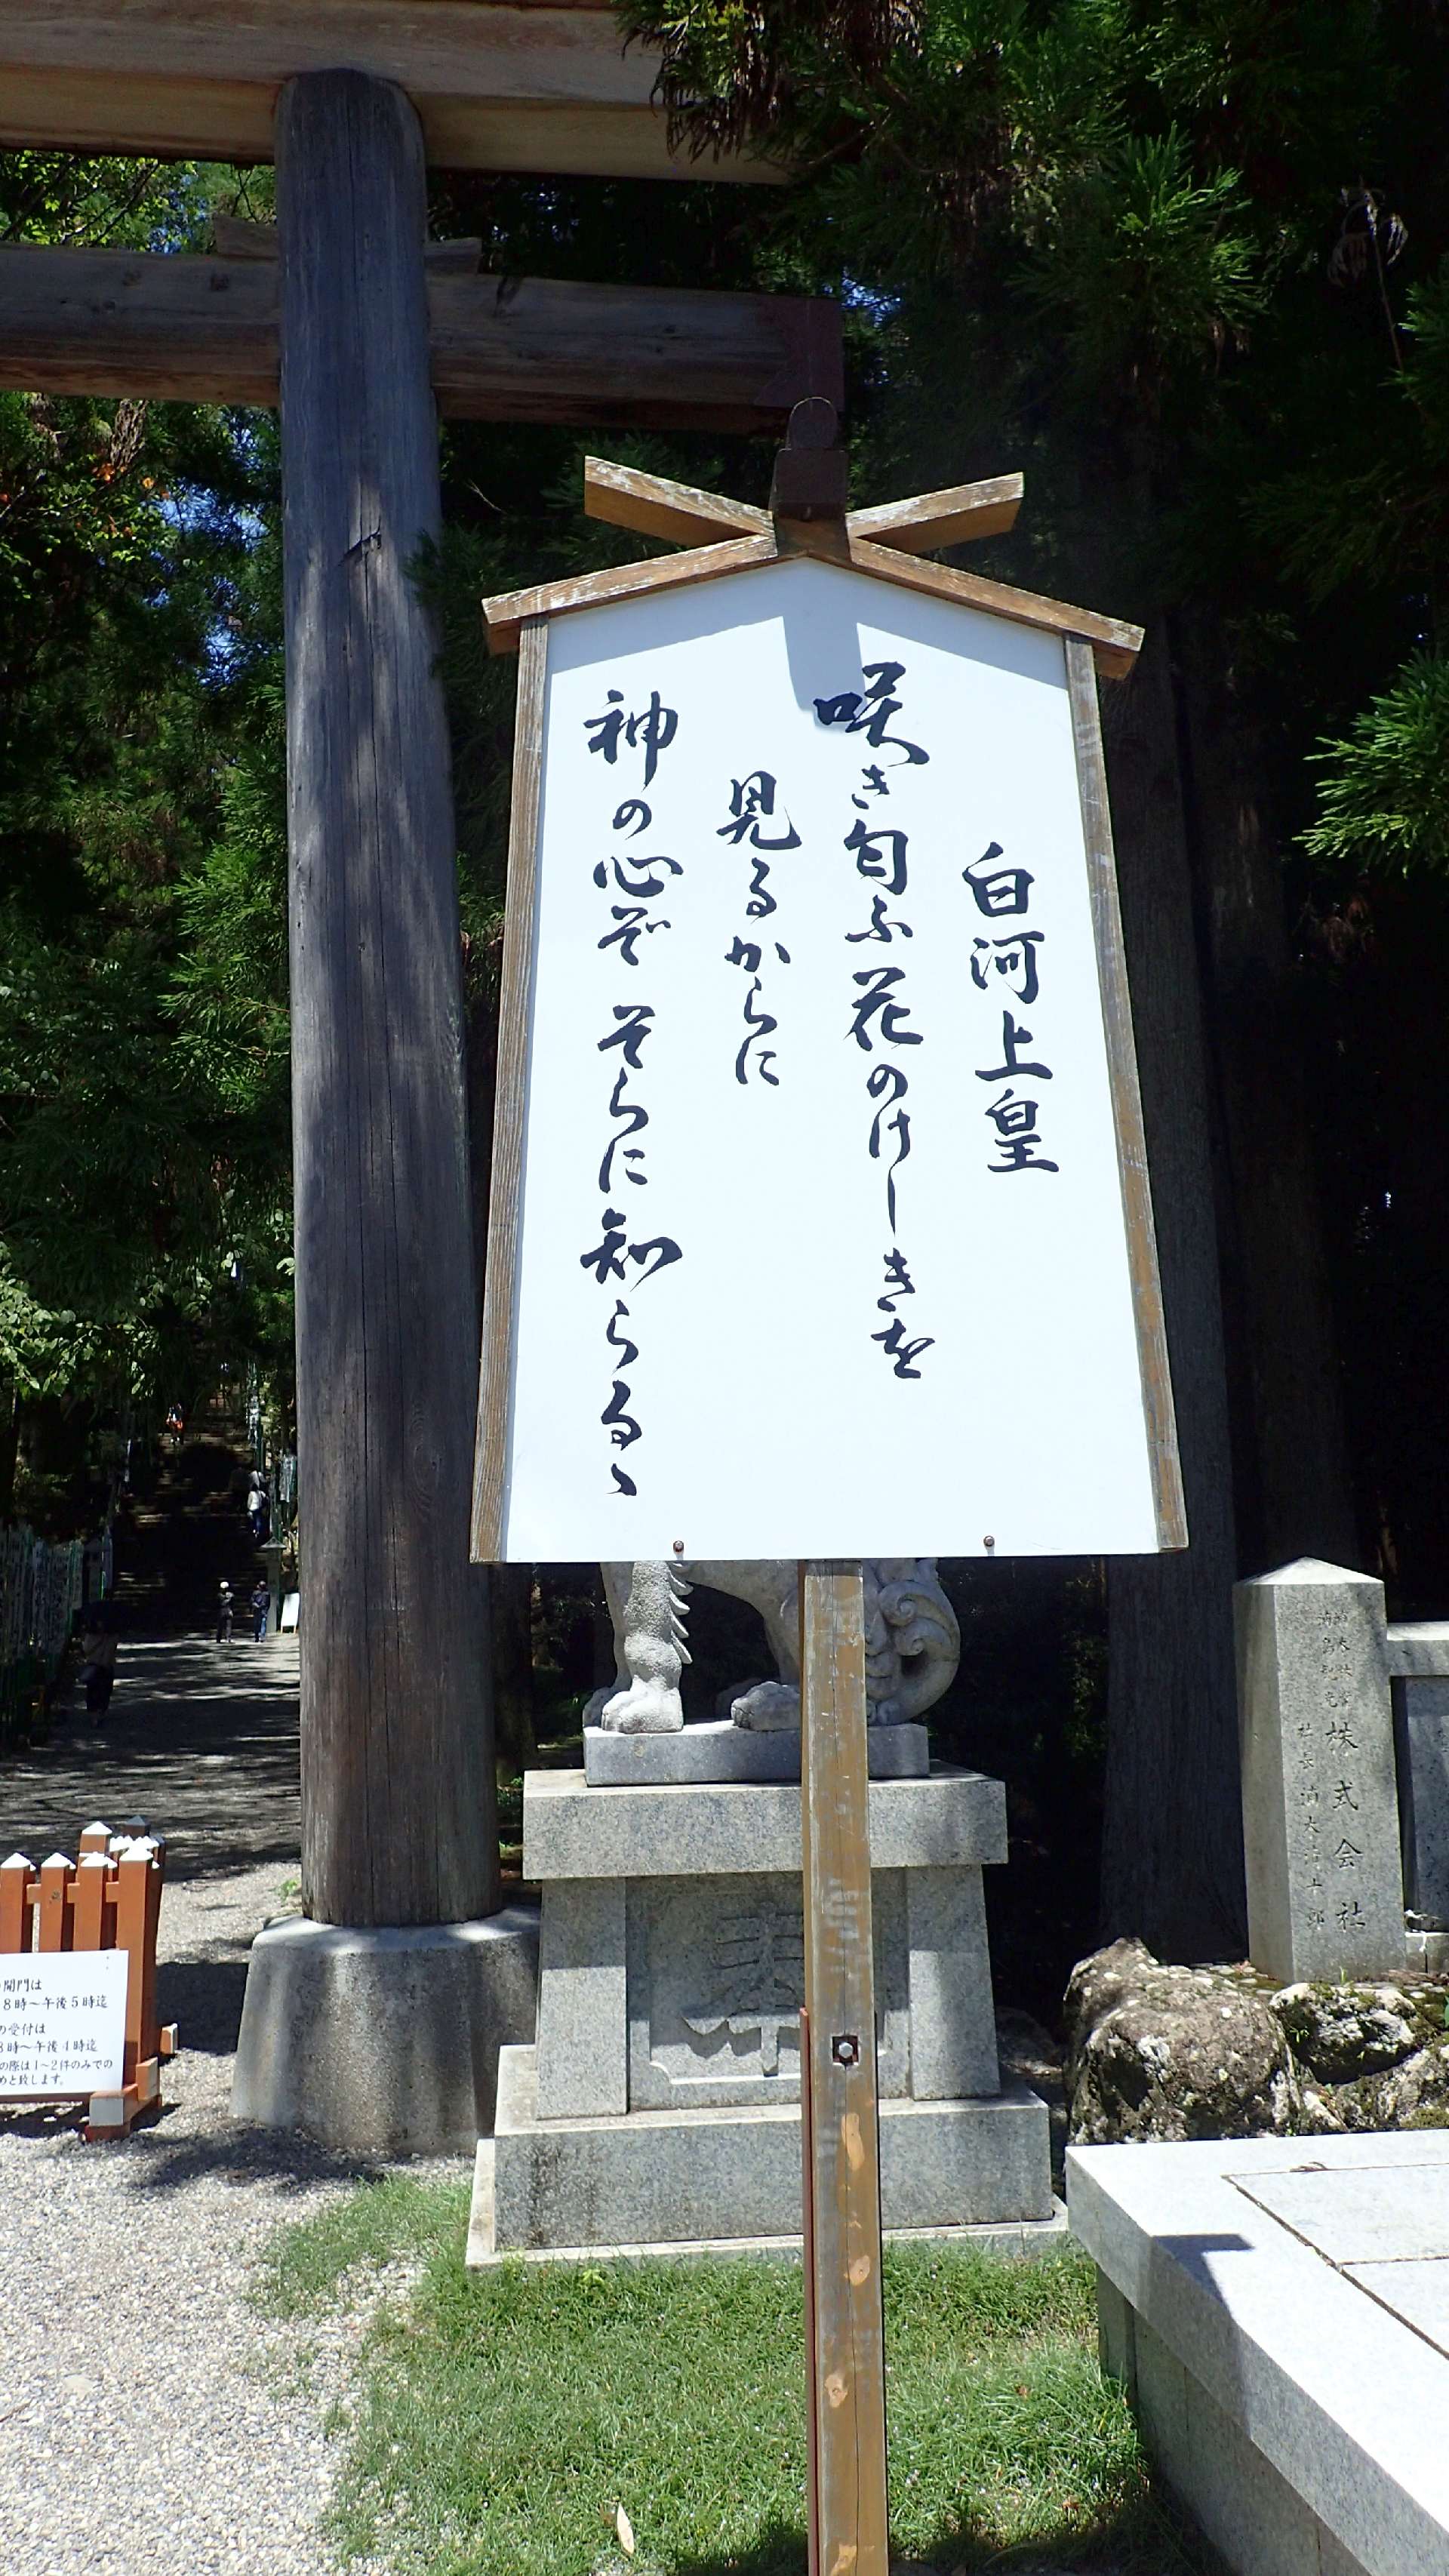 白河上皇
咲き匂ふ花のけしきを
見るからに
神の心ぞそらに知らるゝ
株式会社
社長
開門は
8時～午後5時迄
の受付は
8時～午後4時迄
の際は1～2件のみでの
めと致します。
奉